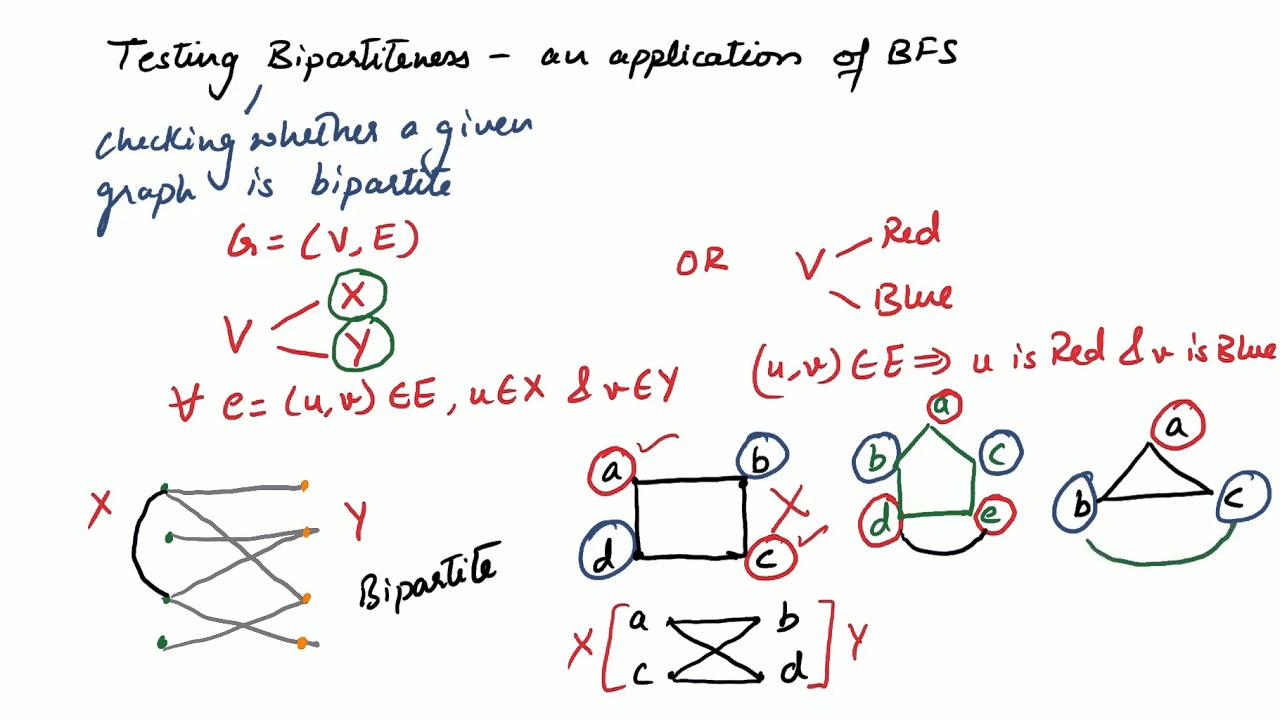 Testing Bipartiteness – an application of BFS
checking whether a given
graph is bipartite
G = (V, E)
V
X
Y
OR
V
Red
Blue
∀ e = (u,v) ∈ E, u ∈ X & v ∈ Y
(u,v) ∈ E ⇒ u is Red & v is Blue
X
Y
Bipartite
a b
d c
X
a
b c
d e
a
b c
X [ a b ] Y
c d